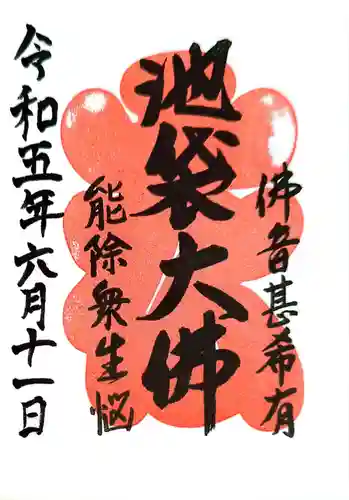 佛音甚希有
池袋大佛
能除衆生悩
令和五年六月十一日